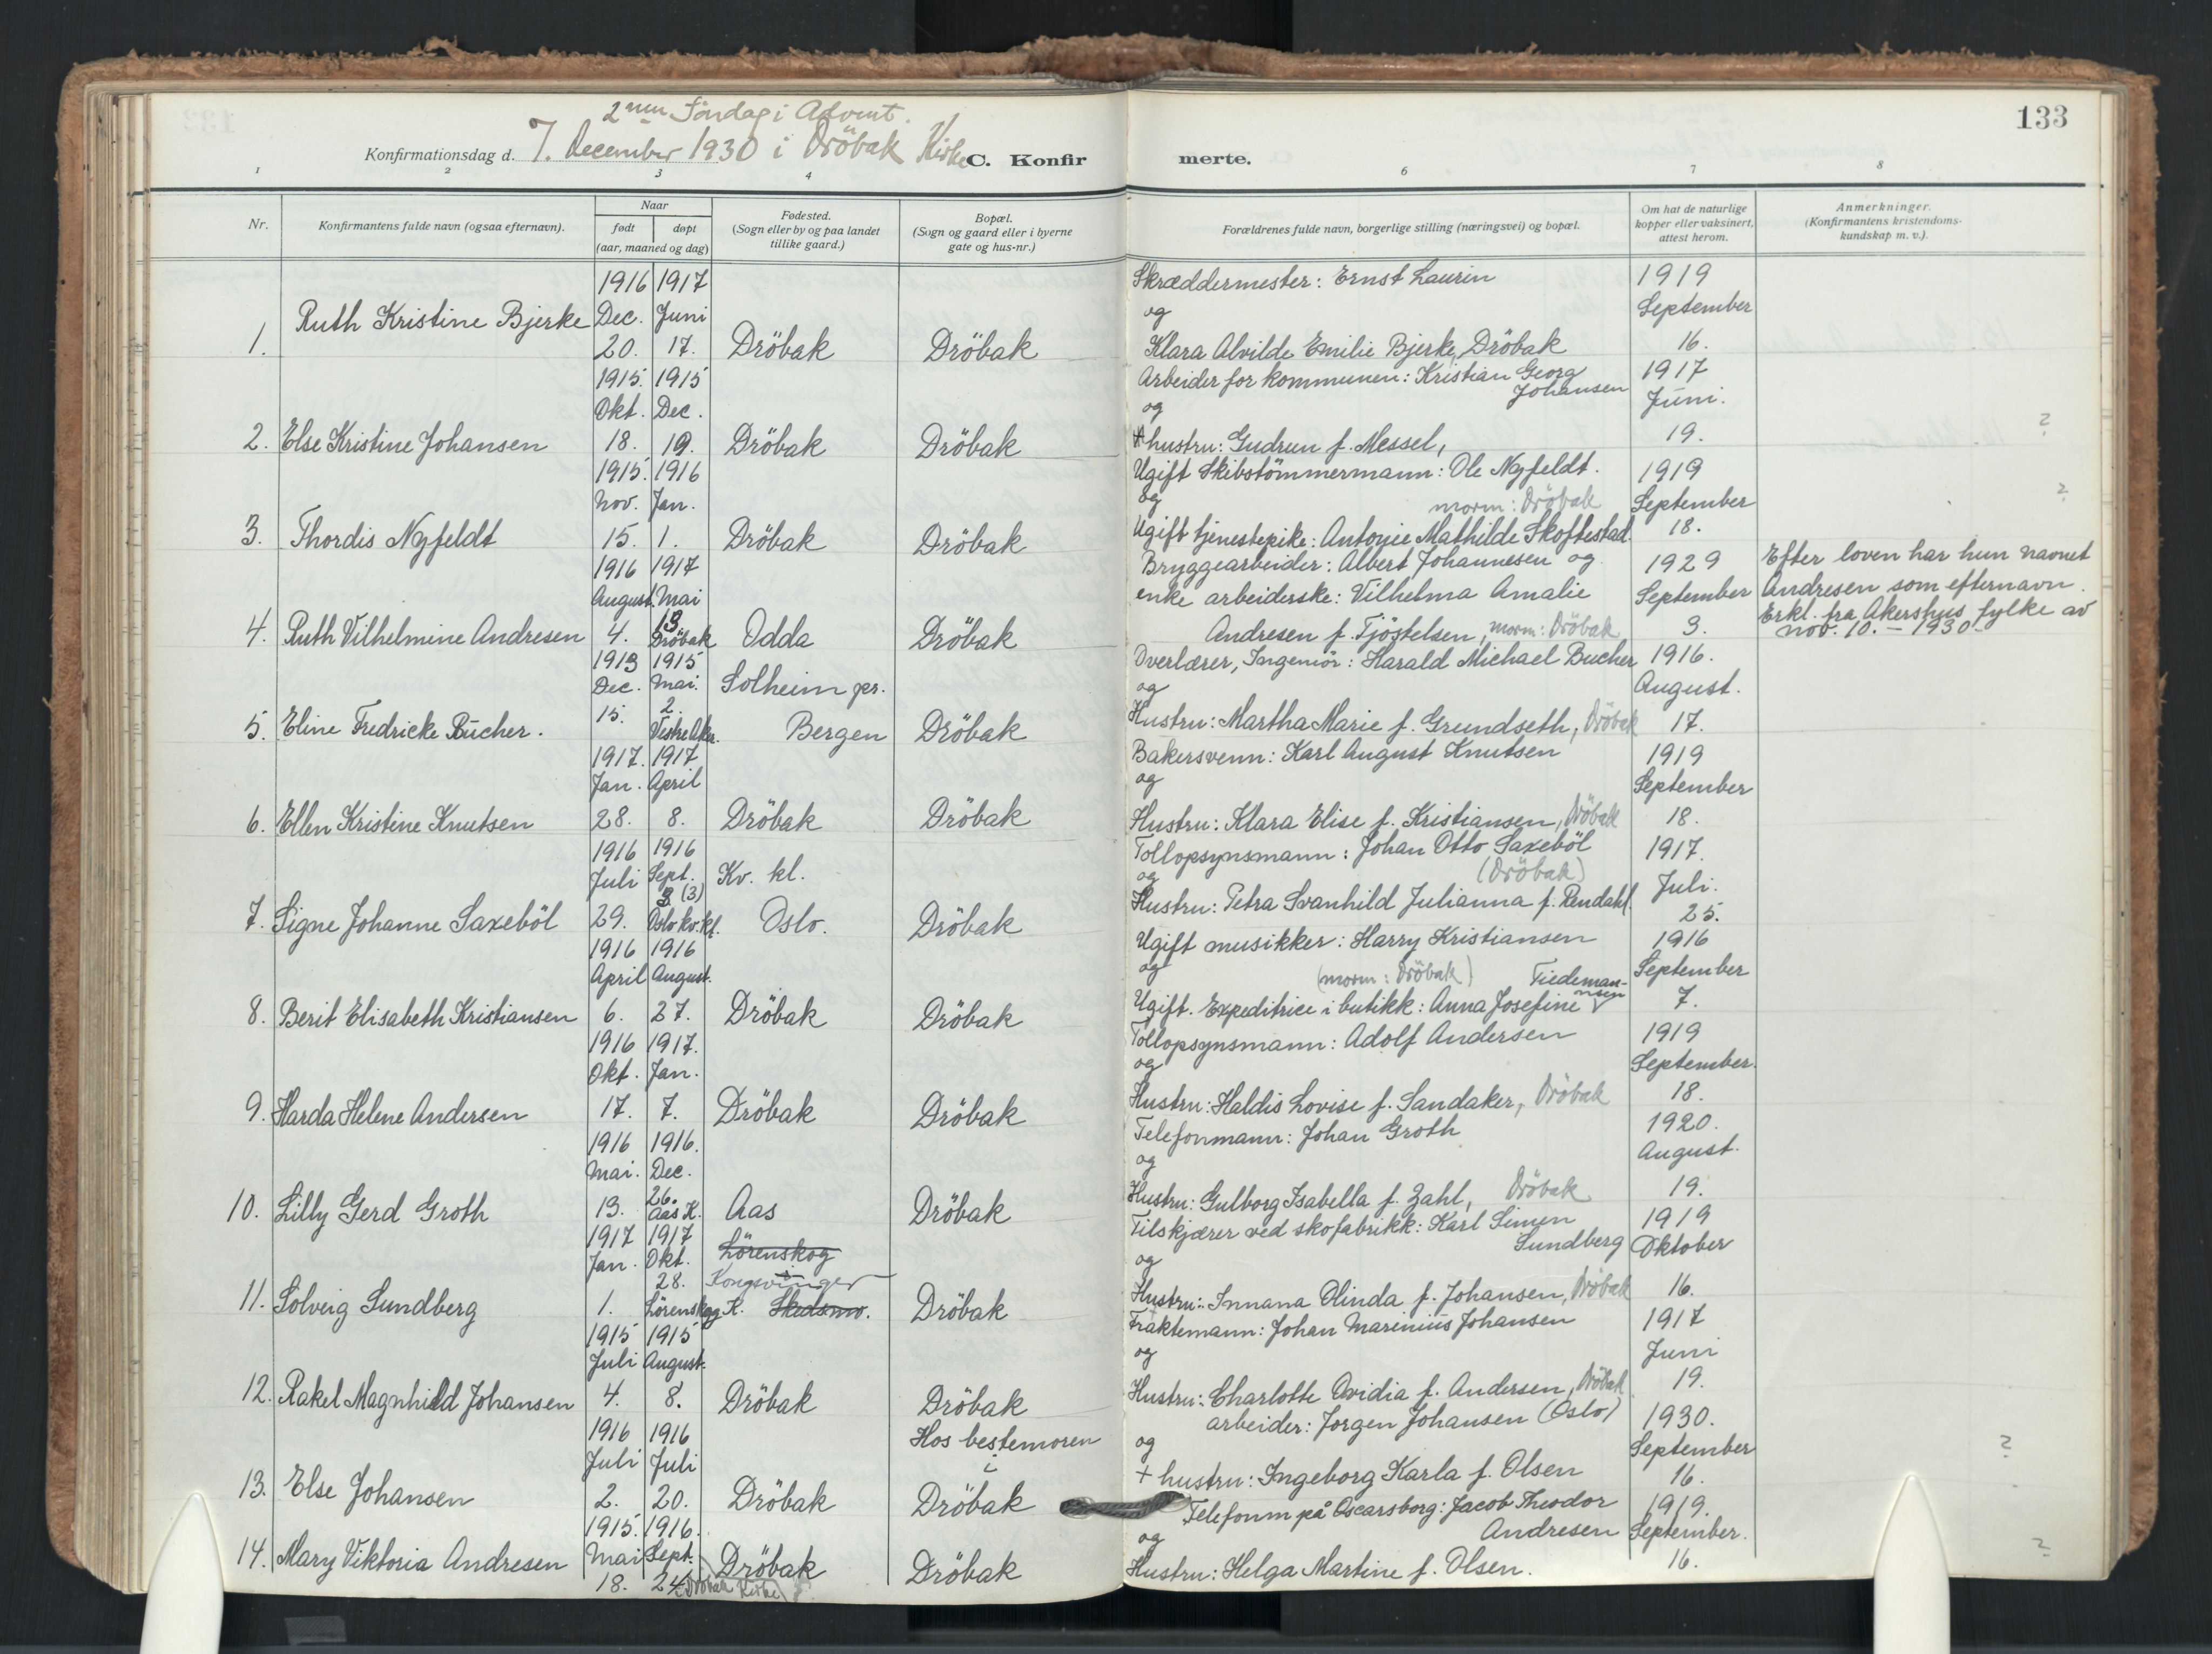 133
2nen Söndag i Advent.
Konfirmationsdag d. 7. December 1930 i Dröbak Kirke C. Konfirmerte.
1 2 3 4 6 7 8
Nr.
Konfirmantens fulde navn (ogsaa efternavn).
Naar
født døpt
(aar, maaned og dag)
Fødested.
(Sogn eller by og paa landet
tillike gaard.)
Bopæl.
(Sogn og gaard eller i byerne
gate og hus-nr.)
Forældrenes fulde navn, borgerlige stilling (næringsvei) og bopæl.
Om hat de naturlige
kopper eller vaksinert,
attest herom.
Anmerkninger.
(Konfirmantens kristendoms-
kundskap m. v.).
1. Ruth Kristine Bjerke
1916 1917
Dec. Juni
20. 17.
Dröbak
Dröbak
Skræddermester: Ernst Laurin
og
Klara Alvilde Emilie Bjerke, Dröbak
1919
September
16.
2. Else Kristine Johansen
1915. 1915
Okt. Dec.
18. 19.
Dröbak
Dröbak
Arbeider for kommunen: Kristian Georg
Johansen
og
+ hustru: Gudrun f. Messel,
1917
Juni.
19.
?
3. Thordis Nyfeldt
1915. 1916
Nov. Jan.
15. 1.
Dröbak
Dröbak
Ugift Skibstömmermann: Ole Nyfeldt.
og
morm: Dröbak
Ugift tjenestepike: Antonie Mathilde Skoftestad.
1919
September
18.
?
4. Ruth Vilhelmine Andresen
1916 1917
August. Mai
4. 13
Dröbak
Odda
Dröbak
Bryggearbeider: Albert Johannesen og
enke arbeiderske: Vilhelma Amalie
Andresen f. Tjöstelsen, morm: Dröbak
1929
September
3.
Efter loven har hun navnet
Andresen som efternavn.
Erkl. fra Akershus fylke av
nov. 10. - 1930.
5. Eline Fredricke Bucher.
1913 1915
Dec. Mai.
15. 2.
Vestre Aker.
Solheim pr.
Bergen
Dröbak
Overlærer, Ingeniör: Harald Michael Bucher
og
Hustru: Martha Marie f. Grundseth, Dröbak
1916.
August.
17.
6. Ellen Kristine Knutsen
1917. 1917
Jan. April
28. 8.
Dröbak
Dröbak
Bakersvenn: Karl August Knutsen
og
Hustru: Klara Elise f. Kristiansen, Dröbak
1919
September
18.
7. Signe Johanne Saxeböl
1916 1916
Juli Sept.
29. 3 (3)
Oslo kv.kl.
Kv. kl.
Oslo.
Dröbak
Tollopsynsmann: Johan Otto Saxeböl
og
(Dröbak)
Hustru: Petra Svanhild Julianna f. Rendahl.
1917.
Juli.
25.
8. Berit Elisabeth Kristiansen
1916 1916
April August.
6. 27.
Dröbak
Dröbak
Ugift musikker: Harry Kristiansen
og
(morm: Dröbak) Tiedeman-
nsen
Ugift. Expeditrice i butikk: Anna Josefine
1916
September
7.
9. Harda Helene Andersen
1916 1917.
Okt. Jan.
17. 7.
Dröbak
Dröbak
Tollopsynsmann: Adolf Andersen
og
Hustru: Haldis Lovise f. Sandaker, Dröbak
1919
September.
18.
10. Lilly Gerd Groth
1916 1916.
Mai. Dec.
13. 26.
Aas K.
Aas
Dröbak
Telefonmann: Johan Groth
og
Hustru: Gulborg Isabella f. Zahl, Dröbak
1920.
August.
19.
11. Solveig Sundberg
1917 1917
Jan. Okt.
1. 28.
Lörenskog K.
Lörenskog
Kongsvinger
Skedsmo.
Dröbak
Tilskjærer ved skofabrikk: Karl Simen
Sundberg
og
Hustru: Innana Olinda f. Johansen, Dröbak
1919
Oktober
16.
12. Rakel Magnhild Johansen
1915 1915
Juli August.
4. 8.
Dröbak
Dröbak
Fraktemann: Johan Marinius Johansen
og
Hustru: Charlotte Ovidia f. Andersen, Dröbak
1917
Juni
19.
13. Else Johansen
1916 1916
Juli Juli
2. 20.
Dröbak
Hos bestemoren
i
Dröbak
arbeider: Jorgen Johansen (Oslo)
og
+ hustru: Ingeborg Karla f. Olsen
1930.
September
16.
?
14. Mary Viktoria Andresen
1915. 1916.
Mai Sept.
18. 24
(Dröbak Kirke)
Dröbak
Dröbak
Telefonm på Oscarsborg: Jacob Theodor
Andresen
og
Hustru: Helga Martine f. Olsen.
1919.
September.
16.
?